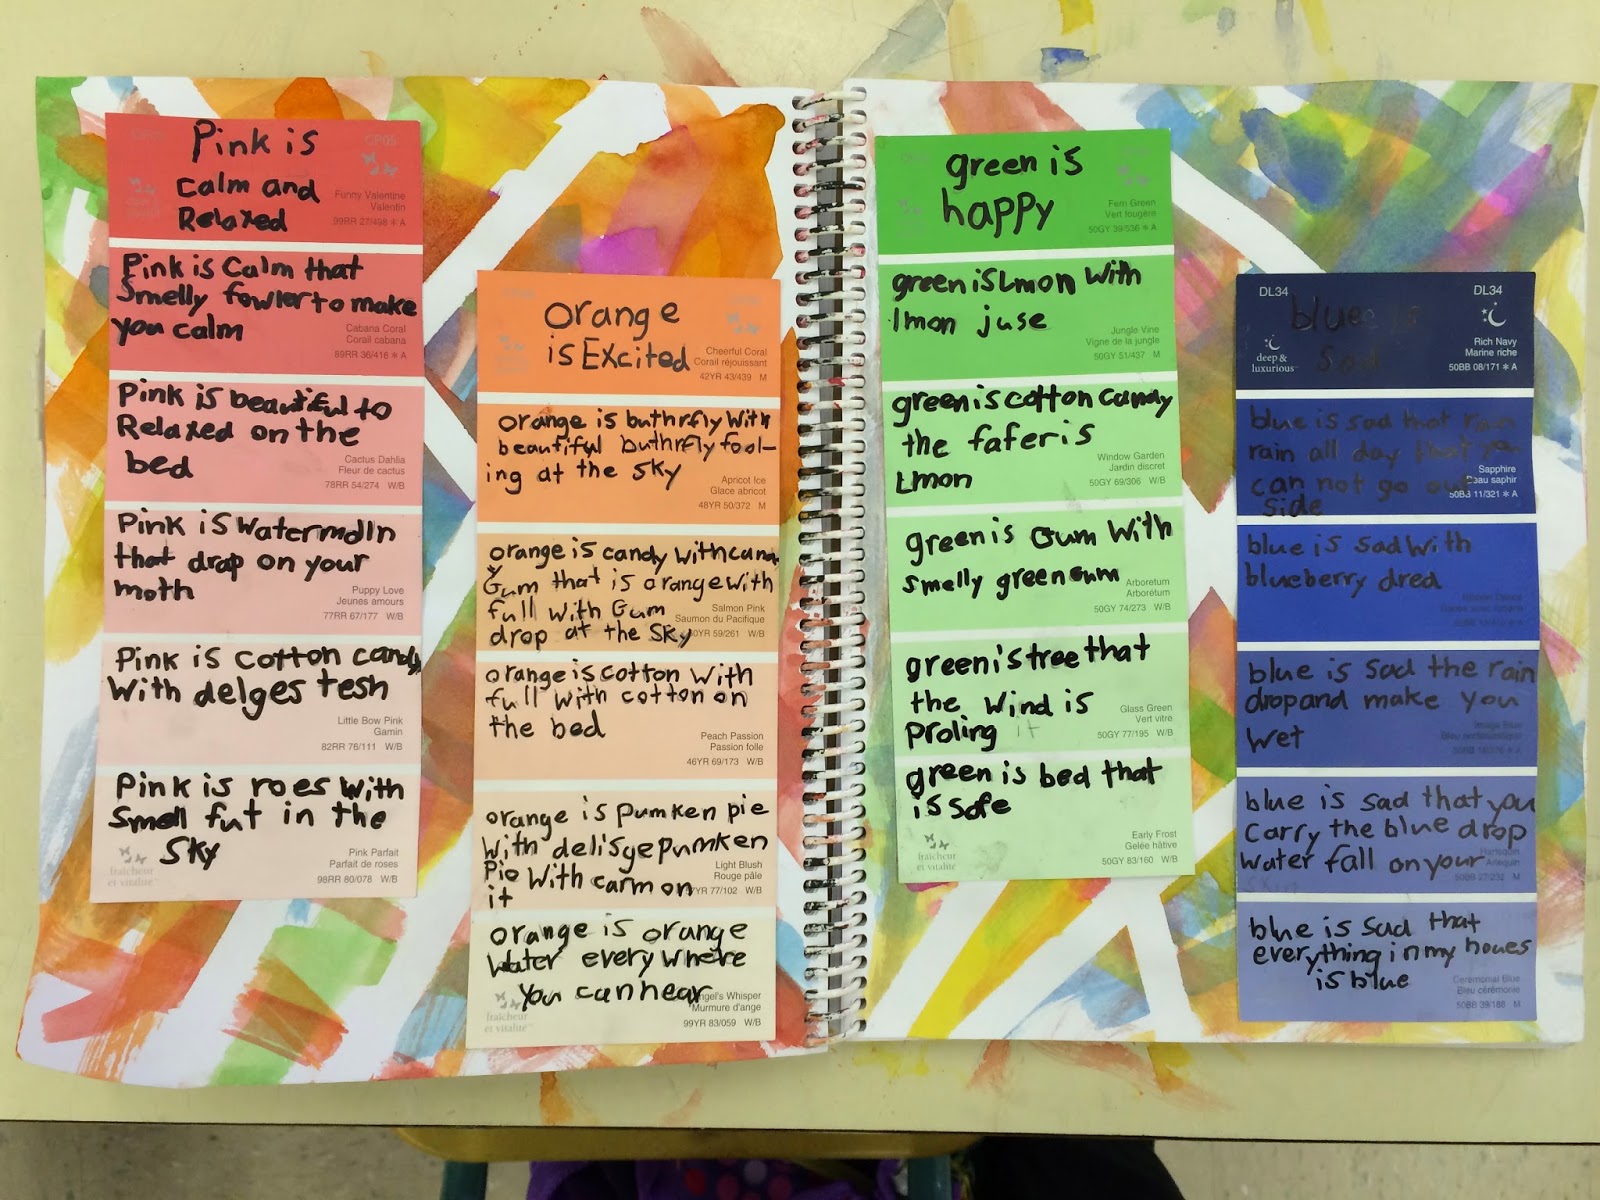 CP05
Pink is
Calm and
Relaxed
Funny Valentine
Valentin
99RR 27/498 * A
Pink is Calm that
Smelly fowler to make
you calm
Cabana Coral
Corail cabana
89RR 36/416 * A
Pink is beautiful to
Relaxed on the
bed
Cactus Dahlia
Fleur de cactus
78RR 54/274 W/B
Pink is watermdln
that drop on your
moth
Puppy Love
Jeunes amours
77RR 67/177 W/B
Pink is cotton candy
With delges tesh
Little Bow Pink
Gamin
82RR 76/111 W/B
Pink is roes with
Smell fut in the
Sky
fraîcheur
et vitalité
Pink Parfait
Parfait de roses
98RR 80/078 W/B
orange
is Excited
Cheerful Coral
Corail réjouissant
42YR 43/439 M
orange is buthrfly with
beautiful buthrfly fool-
ing at the sky
Apricot Ice
Glace abricot
48YR 50/372 M
orange is candy with candy
Gum that is orange with
full with Gum
drop at the Sky
Salmon Pink
Saumon du Pacifique
59/261 W/B
orange is cotton with
full with cotton on
the bed
Peach Passion
Passion folle
46YR 69/173 W/B
orange is Pumken pie
With delisge pumken
Pie with carm on
it
Light Blush
Rouge pâle
77/102 W/B
orange is orange
Water every where
You can hear
fraîcheur
et vitalité
Angel's Whisper
Murmure d'ange
99YR 83/059 W/B
green is
happy
Fern Green
Vert fougère
50GY 39/536 * A
green is Lmon with
lmon juse
Jungle Vine
Vigne de la jungle
50GY 51/437 M
green is cotton candy
the fafer is
Lmon
Window Garden
Jardin discret
50GY 69/306 W/B
green is Gum With
smelly green Gum
Arboretum
Arborétum
50GY 74/273 W/B
green is tree that
the wind is
Proling it
Glass Green
Vert vitré
50GY 77/195 W/B
green is bed that
is safe
fraîcheur
et vitalité
Early Frost
Gelée hâtive
50GY 83/160 W/B
DL34
DL34
blue is
sad
deep &
luxurious
Rich Navy
Marine riche
50BB 08/171 * A
blue is sad that rain
rain all day that you
can not go out
side
Sapphire
Beau saphir
50BB 11/321 * A
blue is sad with
blueberry dred
blue is sad the rain
drop and make you
wet
blue is sad that you
Carry the blue drop
water fall on your
skin
Harlequin
Arlequin
50BB 27/232 M
blue is sad that
everything in my houes
is blue
Ceremonial Blue
Bleu cérémonie
50BB 39/188 M